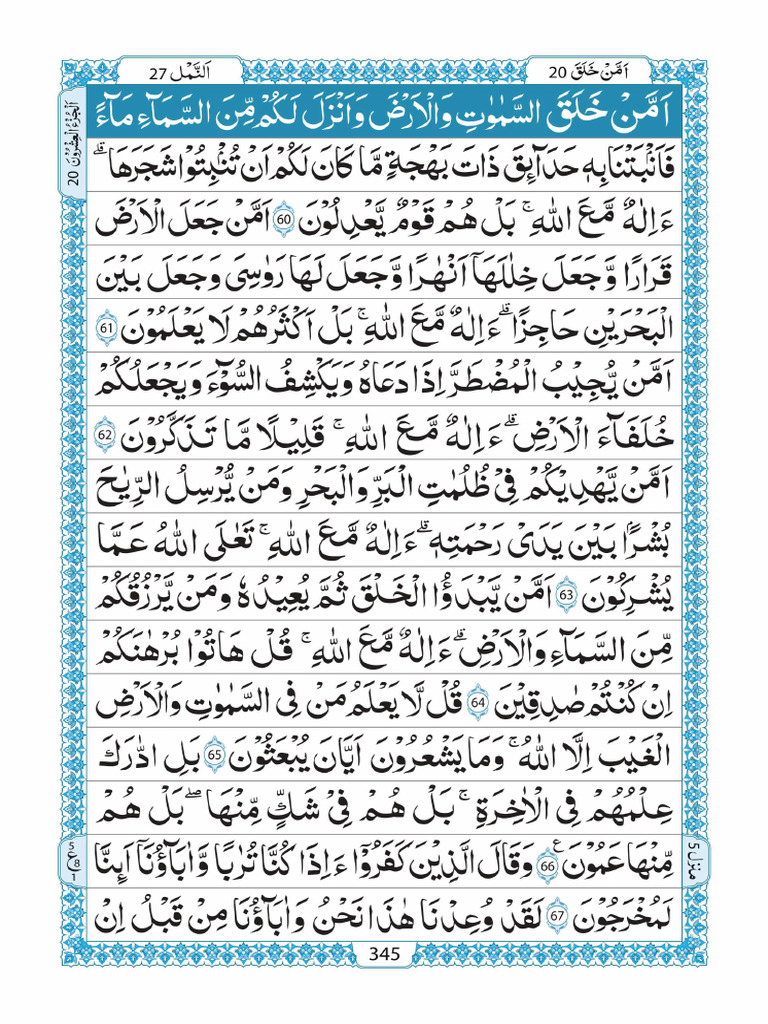 اَلنَّمْل 27
اَمَّنْ خَلَقَ 20
اَلْجُزْءُ الْعِشْرُوْنَ 20
اَمَّنْ خَلَقَ السَّمٰوٰتِ وَالْاَرْضَ وَاَنْزَلَ لَكُمْ مِّنَ السَّمَآءِ مَآءً
فَاَنْۢبَتْنَا بِهٖ حَدَآئِقَ ذَاتَ بَهْجَةٍ مَّا كَانَ لَكُمْ اَنْ تُنْۢبِتُوْا شَجَرَهَاۗ
ءَاِلٰهٌ مَّعَ اللّٰهِۚ بَلْ هُمْ قَوْمٌ يَّعْدِلُوْنَ 60 اَمَّنْ جَعَلَ الْاَرْضَ
قَرَارًا وَّجَعَلَ خِلٰلَهَآ اَنْهٰرًا وَّجَعَلَ لَهَا رَوٰسِيَ وَجَعَلَ بَيْنَ
الْبَحْرَيْنِ حَاجِزًاۗ ءَاِلٰهٌ مَّعَ اللّٰهِۚ بَلْ اَكْثَرُهُمْ لَا يَعْلَمُوْنَ 61
اَمَّنْ يُّجِيْبُ الْمُضْطَرَّ اِذَا دَعَاهُ وَيَكْشِفُ السُّوْٓءَ وَيَجْعَلُكُمْ
خُلَفَآءَ الْاَرْضِۗ ءَاِلٰهٌ مَّعَ اللّٰهِۚ قَلِيْلًا مَّا تَذَكَّرُوْنَ 62
اَمَّنْ يَّهْدِيْكُمْ فِيْ ظُلُمٰتِ الْبَرِّ وَالْبَحْرِ وَمَنْ يُّرْسِلُ الرِّيٰحَ
بُشْرًۢا بَيْنَ يَدَيْ رَحْمَتِهٖۗ ءَاِلٰهٌ مَّعَ اللّٰهِۚ تَعٰلَى اللّٰهُ عَمَّا
يُشْرِكُوْنَ 63 اَمَّنْ يَّبْدَؤُا الْخَلْقَ ثُمَّ يُعِيْدُهٗ وَمَنْ يَّرْزُقُكُمْ
مِّنَ السَّمَآءِ وَالْاَرْضِۗ ءَاِلٰهٌ مَّعَ اللّٰهِۚ قُلْ هَاتُوْا بُرْهٰنَكُمْ
اِنْ كُنْتُمْ صٰدِقِيْنَ 64 قُلْ لَّا يَعْلَمُ مَنْ فِي السَّمٰوٰتِ وَالْاَرْضِ
الْغَيْبَ اِلَّا اللّٰهُۚ وَمَا يَشْعُرُوْنَ اَيَّانَ يُبْعَثُوْنَ 65 بَلِ ادّٰرَكَ
عِلْمُهُمْ فِي الْاٰخِرَةِۚ بَلْ هُمْ فِيْ شَكٍّ مِّنْهَاۖ بَلْ هُمْ
مِّنْهَا عَمُوْنَ 66 وَقَالَ الَّذِيْنَ كَفَرُوْٓا ءَاِذَا كُنَّا تُرٰبًا وَّاٰبَآؤُنَآ اَئِنَّا
لَمُخْرَجُوْنَ 67 لَقَدْ وُعِدْنَا هٰذَا نَحْنُ وَاٰبَآؤُنَا مِنْ قَبْلُ اِنْ
منزل 5
345